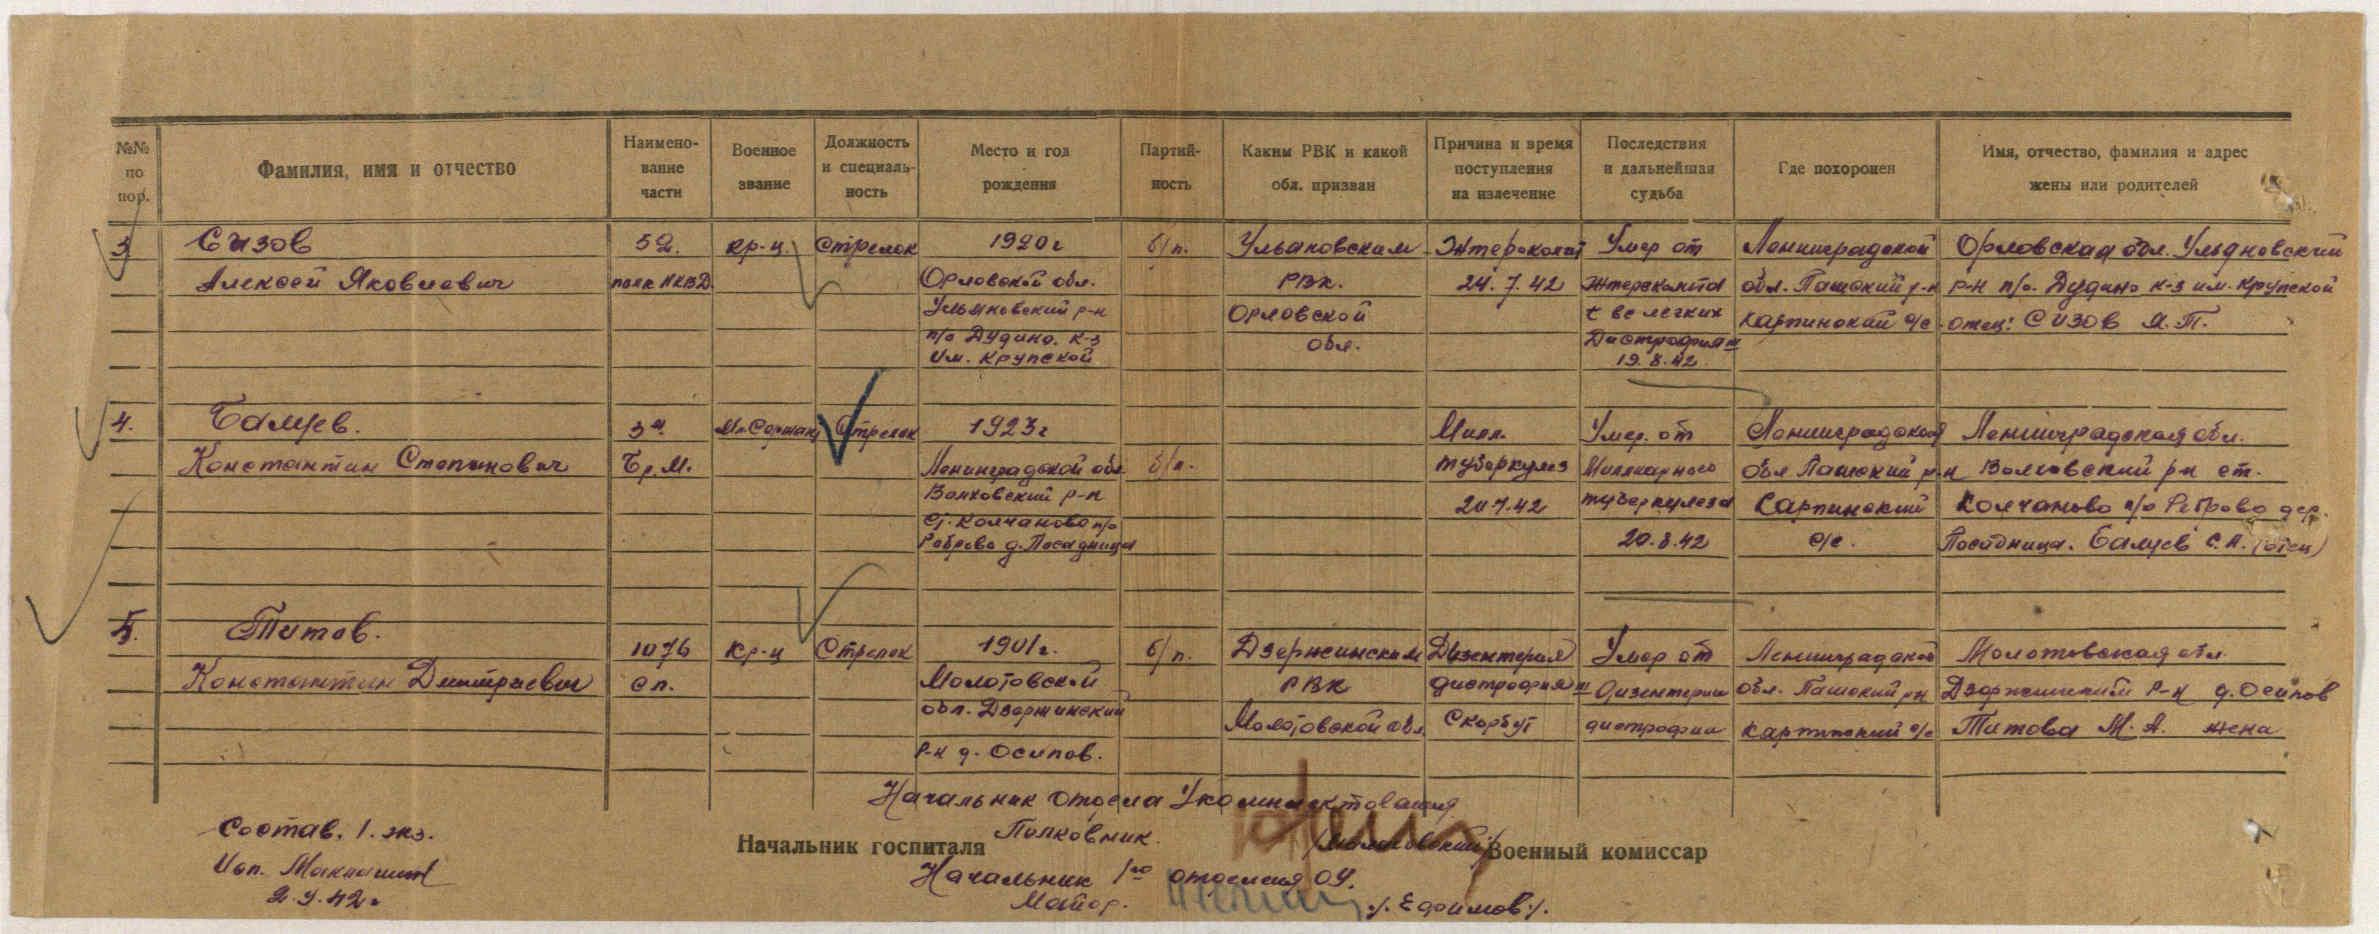 №№ по пор.
Фамилия, имя и отчество
Наимено-
вание
части
Военное
звание
Должность
и специаль-
ность
Место и год
рождения
Партий-
ность
Каким РВК и какой
обл. призван
Причина и время
поступления
на излечение
Последствия
и дальнейшая
судьба
Где похоронен
Имя, отчество, фамилия и адрес
жены или родителей
3
Сизов
Алексей Яковлевич
52.
полк НКВД
кр-ц.
Стрелок
1920г
Орловской обл.
Ульяновский р-н
п/о Дудино. к-з
им. Крупской
б/п.
Ульяновским
РВК.
Орловской
обл.
Энтероколит
24.7.42
Умер от
энтероколита
t вс легких
Дистрофия III
19.8.42
Ленинградской
обл. Пашский р-н
Карпинский с/с.
Орловская обл. Ульяновский
р-н п/о. Дудино к-з им. Крупской
отец: Сизов Я.Т.
4.
Балуев.
Константин Степанович
3й
Бр.М.
Мл.Сержант
Стрелок
1923г
Ленинградской обл
Волховский р-н
ст. Колчаново п/о
Реброво д. Посадница
б/п.
Милл.
туберкулез
20.7.42
Умер. от
Миллиарного
туберкулеза
20.8.42
Ленинградской
обл Пашский р-н
Карпинский
с/с.
Ленинградская обл.
Волховский р-н ст.
Колчаново п/о Реброво дер.
Посадница. Балуев С.П. (отец)
5.
Титов.
Константин Дмитриевич
1076
сп.
Кр-ц
Стрелок
1901г.
Молотовской
обл. Дзержинский
р-н д. Осипов.
б/п.
Дзержинским
РВК
Молотовской обл.
Дизентерия
дистрофия III
Скорбут
Умер от
дизентерии
дистрофии
Ленинградской
обл. Пашский р-н
Карпинский с/с
Молотовская обл
Дзержинский р-н д. Осипов
Титова М.А. жена
Начальник отдела Укомплектования
Состав. 1. экз.
Полковник.
Начальник госпиталя
Военный комиссар
Исп.
Начальник 1го отделения ОУ.
2.9.42г
Майор.
/. Ефимов./.